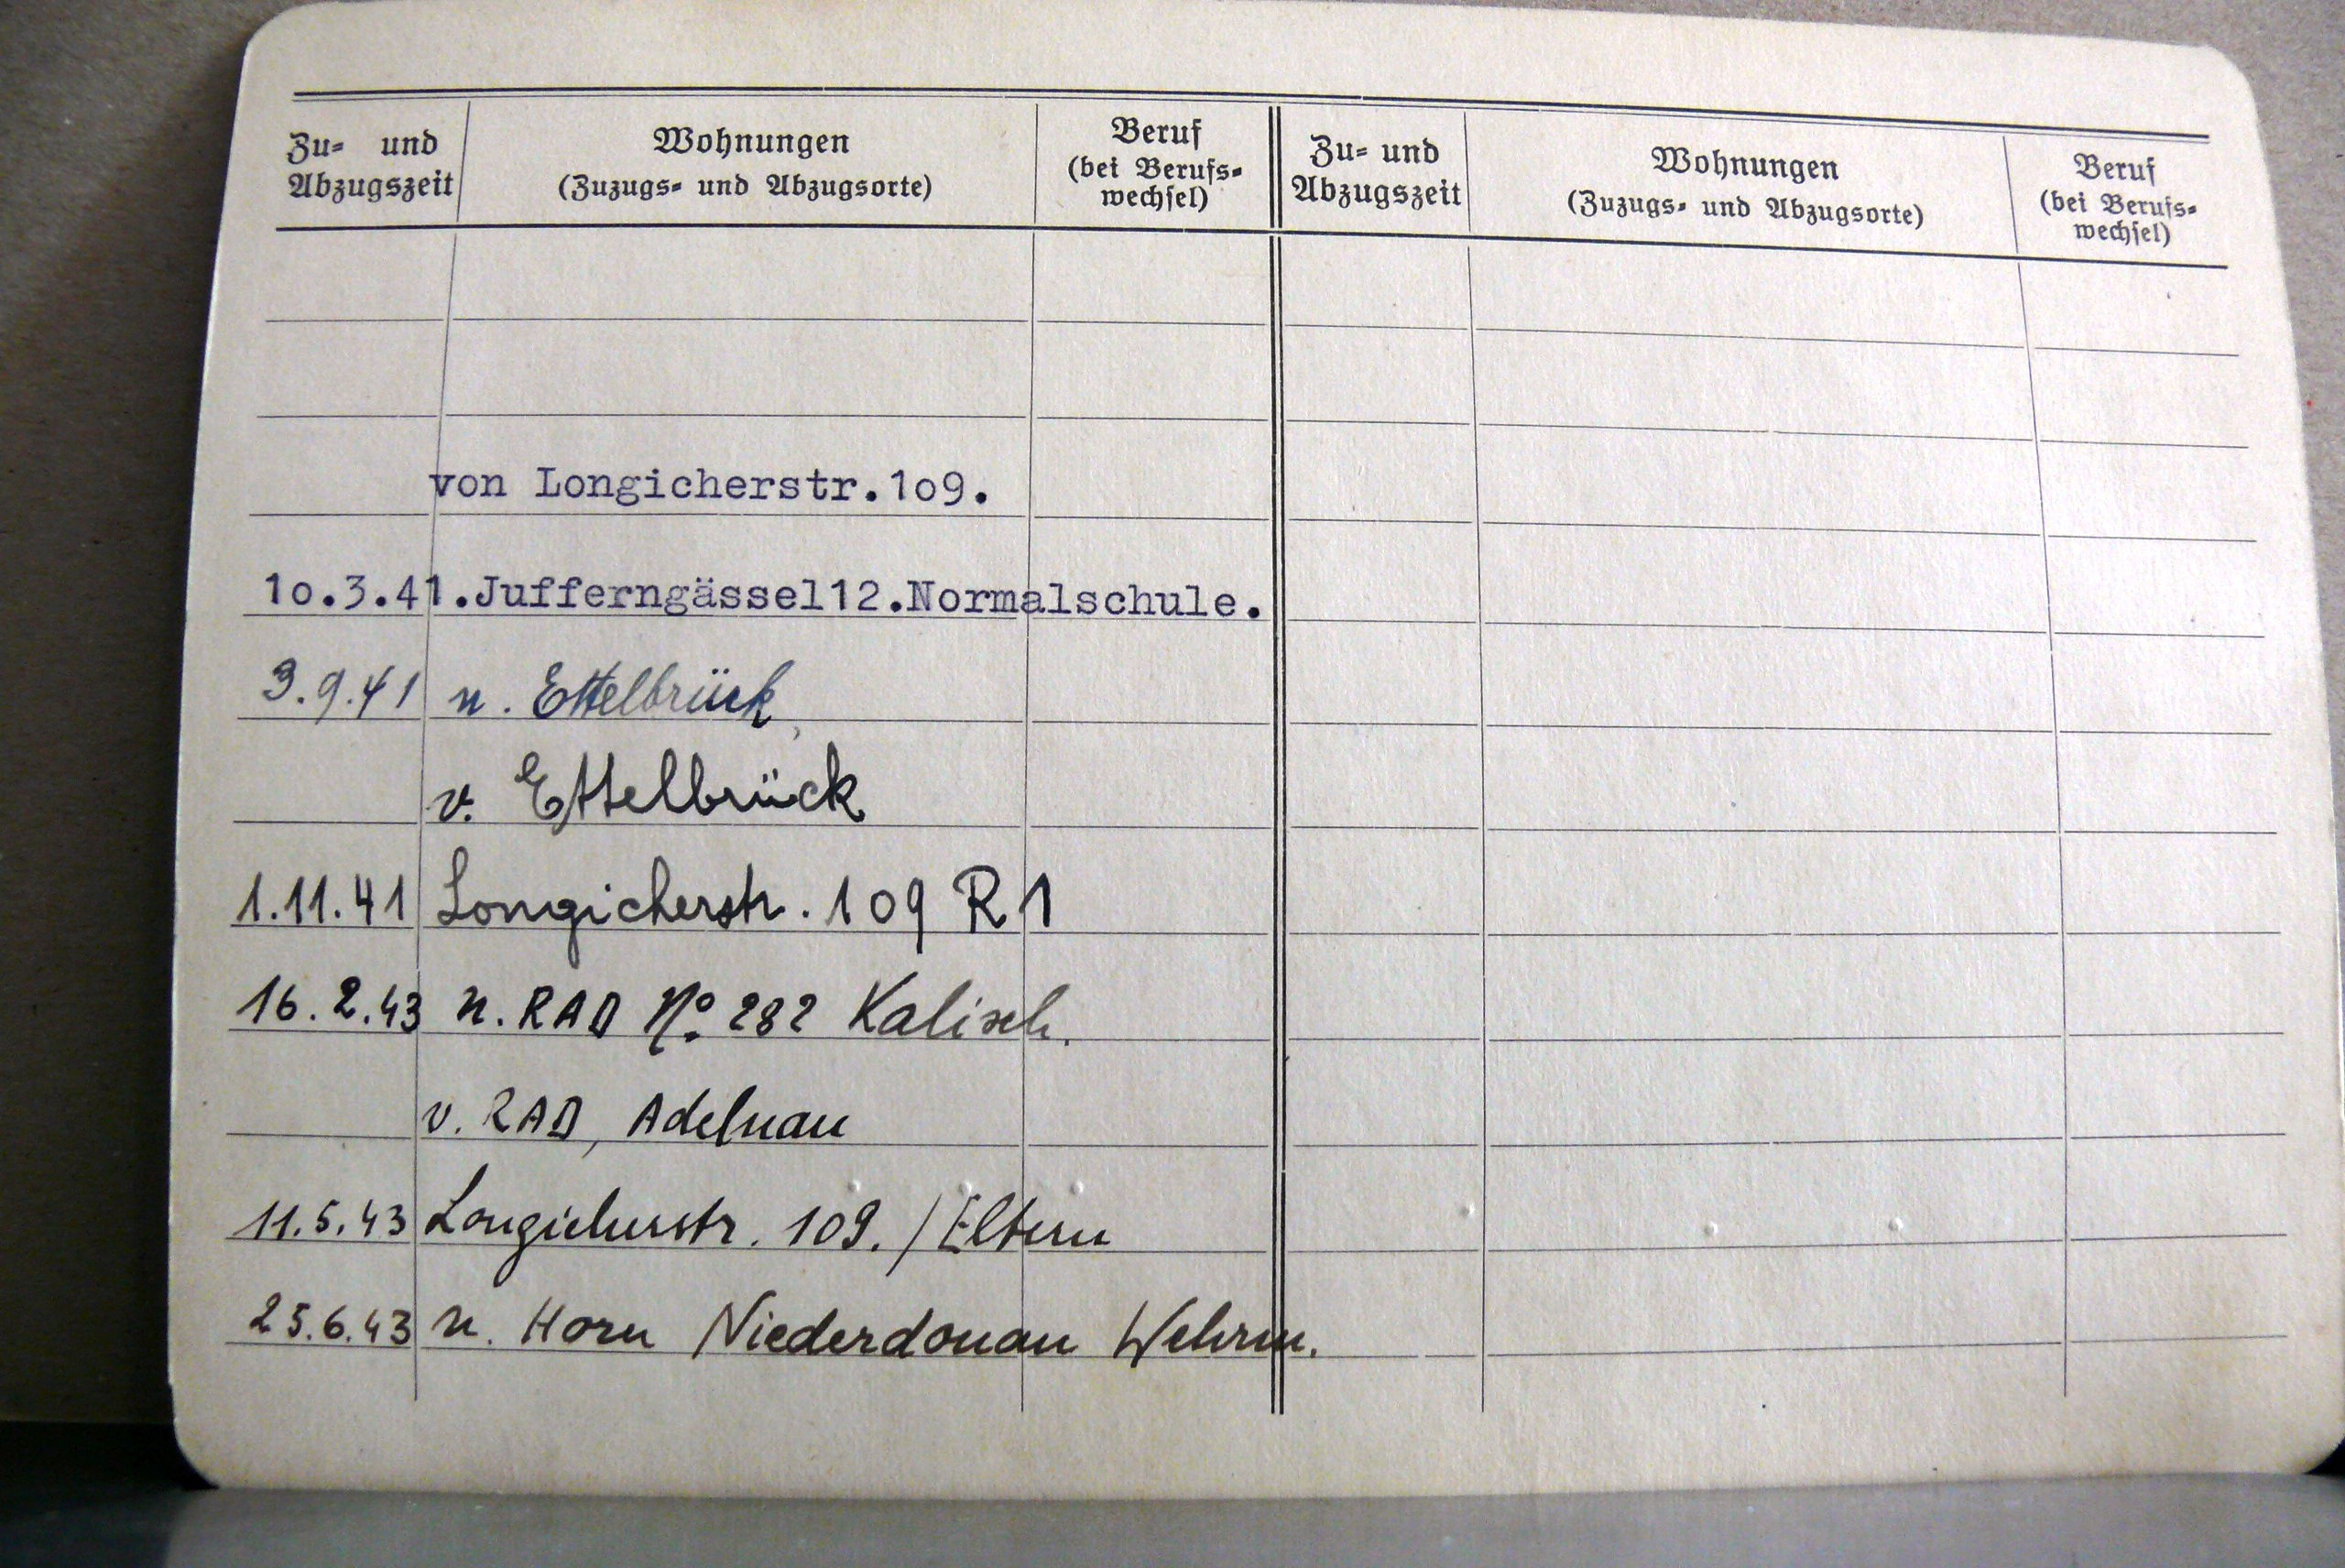 Zu- und Abzugszeit
Wohnungen
(Zuzugs- und Abzugsorte)
Beruf
(bei Berufs-
wechsel)
Zu- und Abzugszeit
Wohnungen
(Zuzugs- und Abzugsorte)
Beruf
(bei Berufs-
wechsel)
von Longicherstr.1o9.
1o.3.41.Jufferngässel12.Normalschule.
3.9.41 n. Ettelbrück
v. Ettelbrück
1.11.41 Longicherstr. 109 R 1
16.2.43 n. RAD No. 282 Kalisch.
v. RAD, Adelnau
11.5.43 Longicherstr. 109. / Eltern
25.6.43 n. Horn Niederdonau Wehrm.